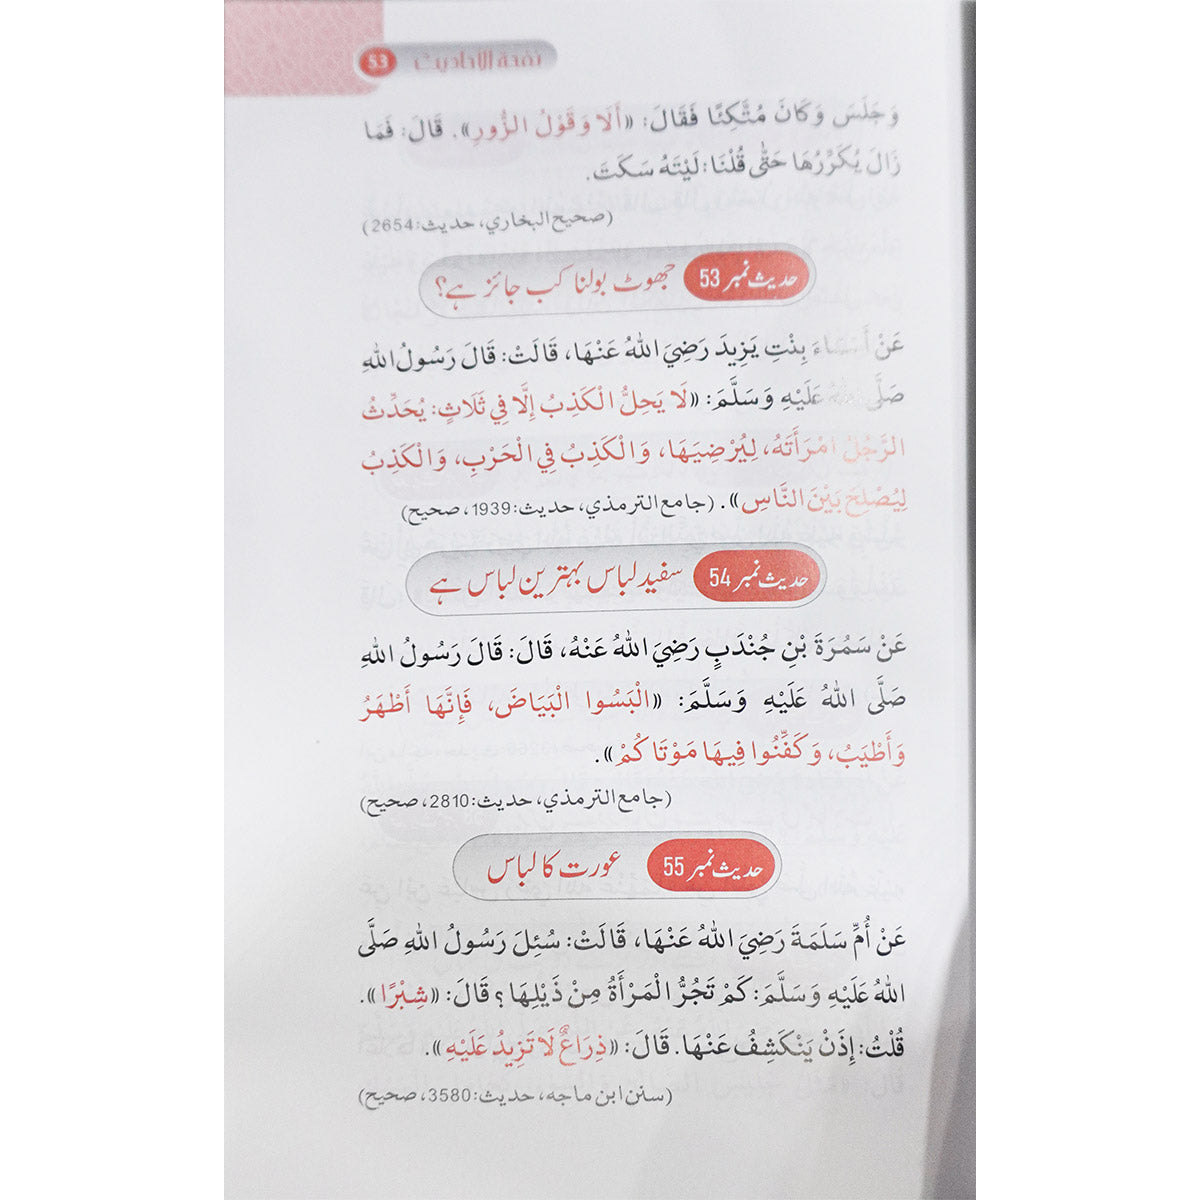 نفحة الاحاديث 53
وَجَلَسَ وَكَانَ مُتَّكِئًا فَقَالَ: «أَلَا وَقَوْلُ الزُّورِ». قَالَ: فَمَا
زَالَ يُكَرِّرُهَا حَتَّى قُلْنَا: لَيْتَهُ سَكَتَ.
(صحيح البخاري، حديث:2654)
حدیث نمبر 53 جھوٹ بولنا کب جائز ہے؟
عَنْ أَسْمَاءَ بِنْتِ يَزِيدَ رَضِيَ اللهُ عَنْهَا، قَالَتْ: قَالَ رَسُولُ اللهِ
صَلَّى اللهُ عَلَيْهِ وَسَلَّمَ: «لَا يَحِلُّ الْكَذِبُ إِلَّا فِي ثَلَاثٍ: يُحَدِّثُ
الرَّجُلُ امْرَأَتَهُ، لِيُرْضِيَهَا، وَالْكَذِبُ فِي الْحَرْبِ، وَالْكَذِبُ
لِيُصْلِحَ بَيْنَ النَّاسِ». (جامع الترمذي، حديث:1939، صحيح)
حدیث نمبر 54 سفید لباس بہترین لباس ہے
عَنْ سَمُرَةَ بْنِ جُنْدَبٍ رَضِيَ اللهُ عَنْهُ، قَالَ: قَالَ رَسُولُ اللهِ
صَلَّى اللهُ عَلَيْهِ وَسَلَّمَ: «الْبَسُوا الْبَيَاضَ، فَإِنَّهَا أَطْهَرُ
وَأَطْيَبُ، وَكَفِّنُوا فِيهَا مَوْتَاكُمْ».
(جامع الترمذي، حديث:2810، صحيح)
حدیث نمبر 55 عورت کا لباس
عَنْ أُمِّ سَلَمَةَ رَضِيَ اللهُ عَنْهَا، قَالَتْ: سُئِلَ رَسُولُ اللهِ صَلَّى
اللهُ عَلَيْهِ وَسَلَّمَ: كَمْ تَجُرُّ الْمَرْأَةُ مِنْ ذَيْلِهَا؟ قَالَ: «شِبْرًا».
قُلْتُ: إِذَنْ يَنْكَشِفُ عَنْهَا. قَالَ: «ذِرَاعٌ لَا تَزِيدُ عَلَيْهِ».
(سنن ابن ماجه، حديث:3580، صحيح)